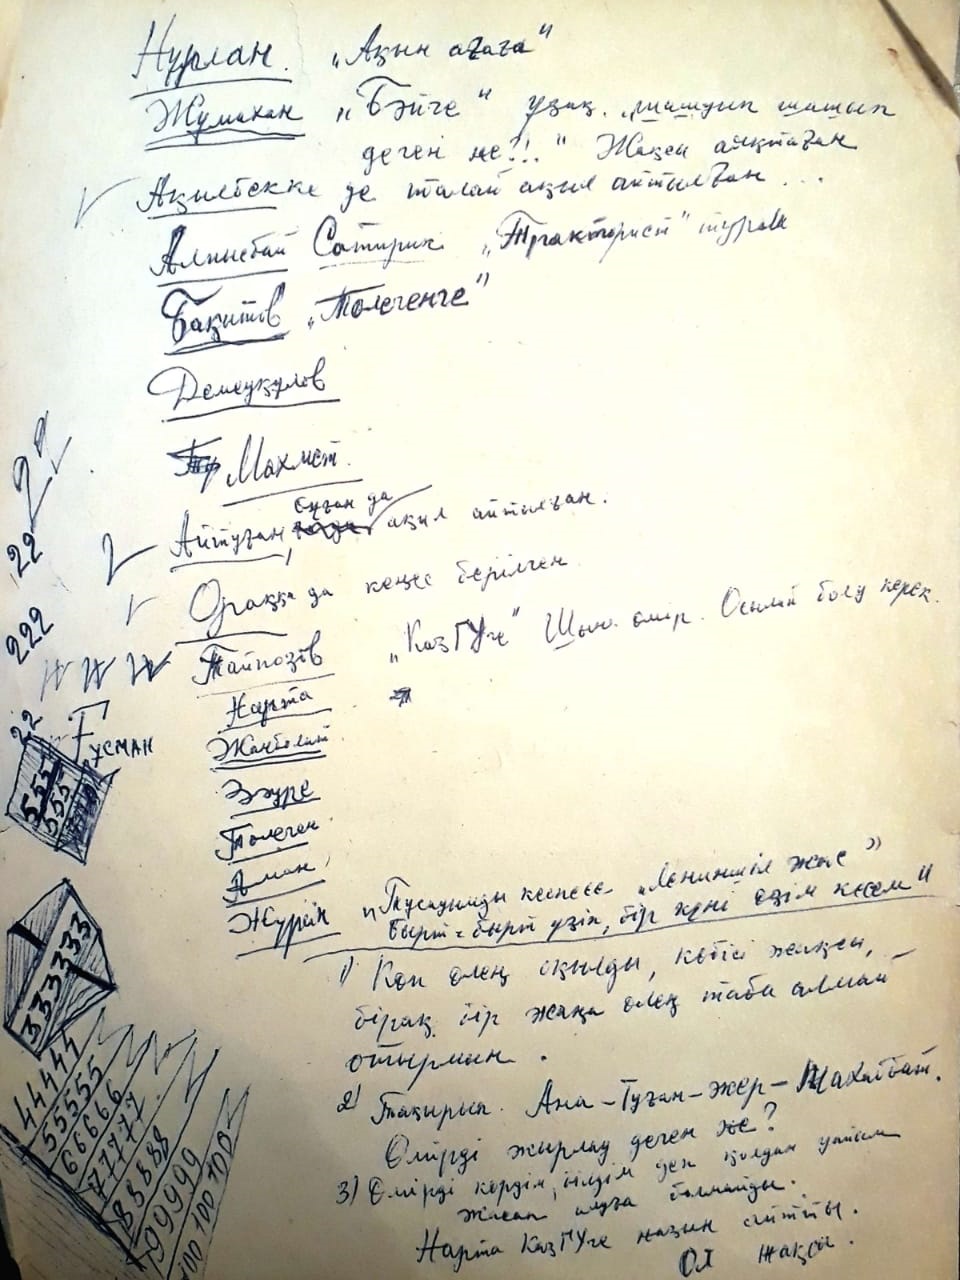 Нурлан. „Ақын ағаға"
Жумахан „Бәйге" ұзақ. „шашдың шашып
деген не?!.." Жақсы аяқтаған
Ақылбекке де талай ақыл айтылған...
Алпысбай Сатирик „Тракторист" туралы
Бақитов „Төлегенге"
Демеуқұлов
Махмет.
бұған да
Айтуған, ақыл айтылған.
Ораққа да кеңес берілген.
Тайпозов „КазГУге" Шын өмір. Осылай болу керек.
Нарта
Жанболат
Зәуре
Төлеген
Аман
Жүрсін „Тұсауымды кеспесе „Лениншіл жас"
Бырт-бырт үзіп, бір күні өзім кесем"
1) Көп өлең оқылды, көбісі жақсы,
бірақ бір жаңа өлең таба алмай
отырмын.
2) Тақырып. Ана – Туған-жер – Махаббат.
Өмірді жырлау деген не?
3) Өмірді көрдім, білдім деп қолдан уайым
жасап алуға болмайды.
Нарта КазГУге назын айтты.
Ол жақсы.
22
22
222
22
Гусман
555
555
333333
44444
55555
66666
77777
88888
99999
100 100 100